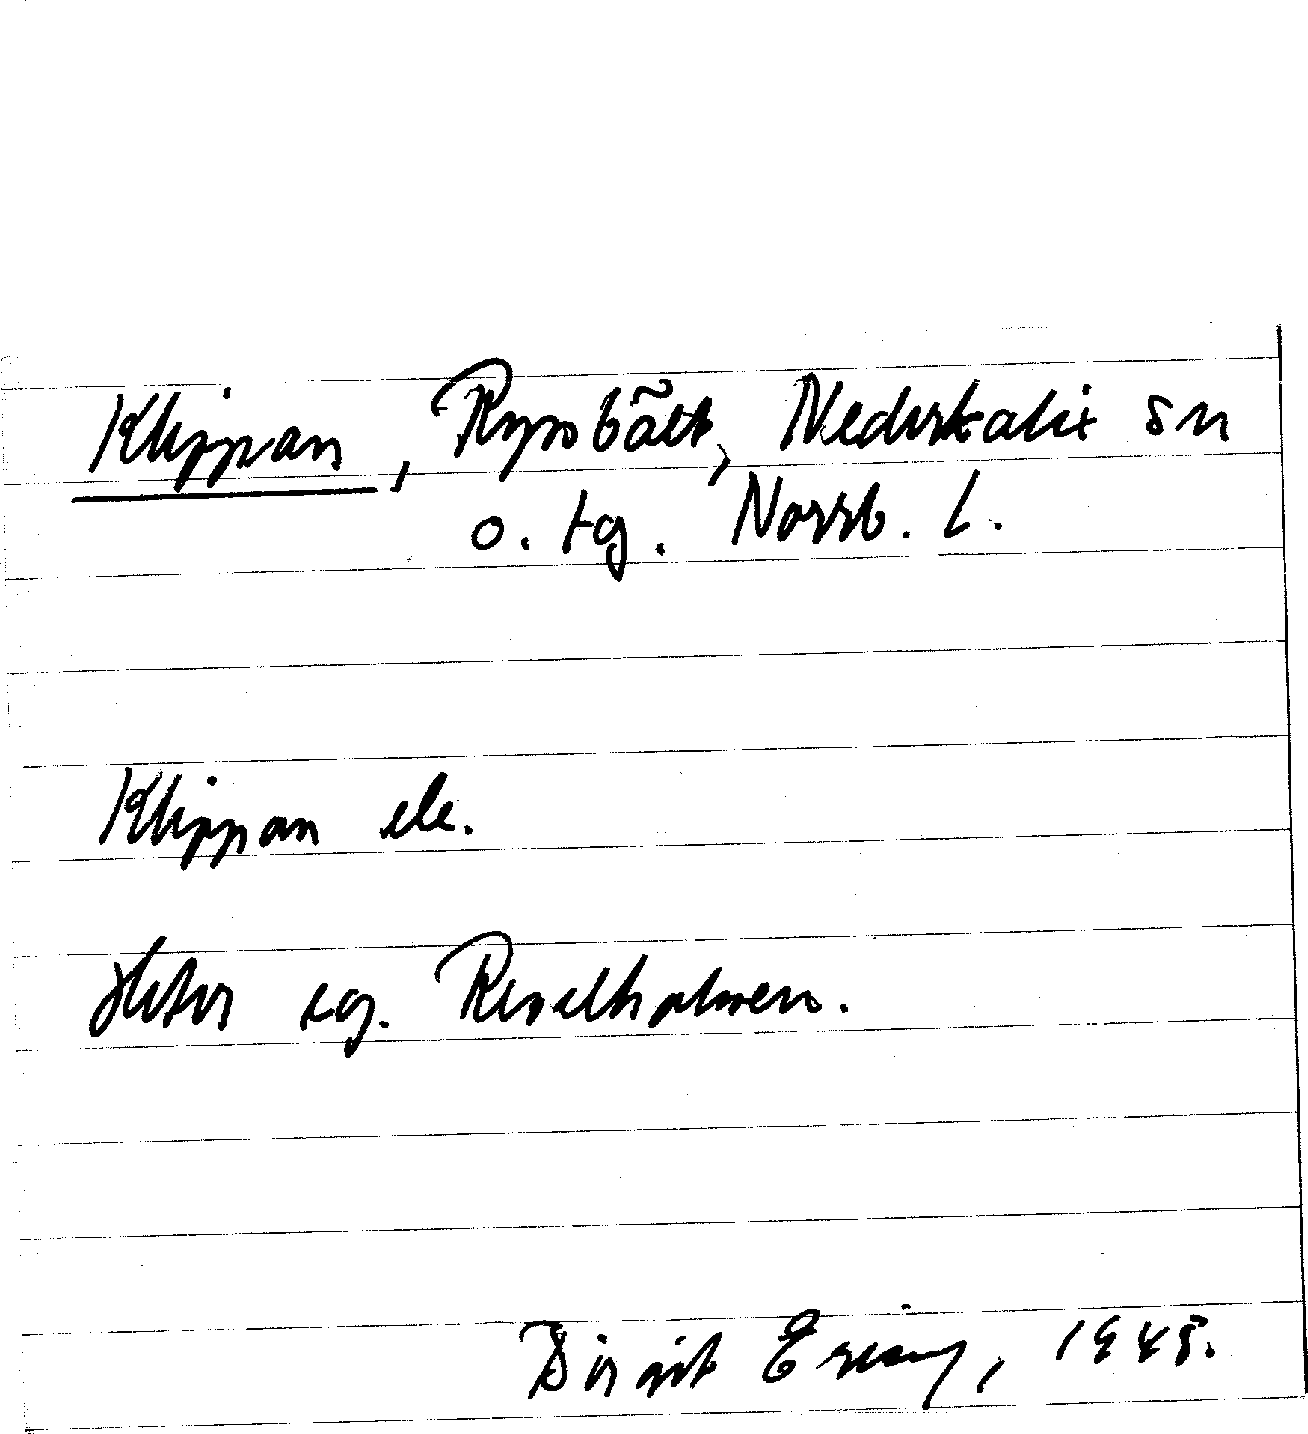 Klippan, Rysobält, Nederkalix sn
o. tg. Norrb. l.
Klippan ele.
Heter eg. Revelholmen.
Birgit Ering, 1945.